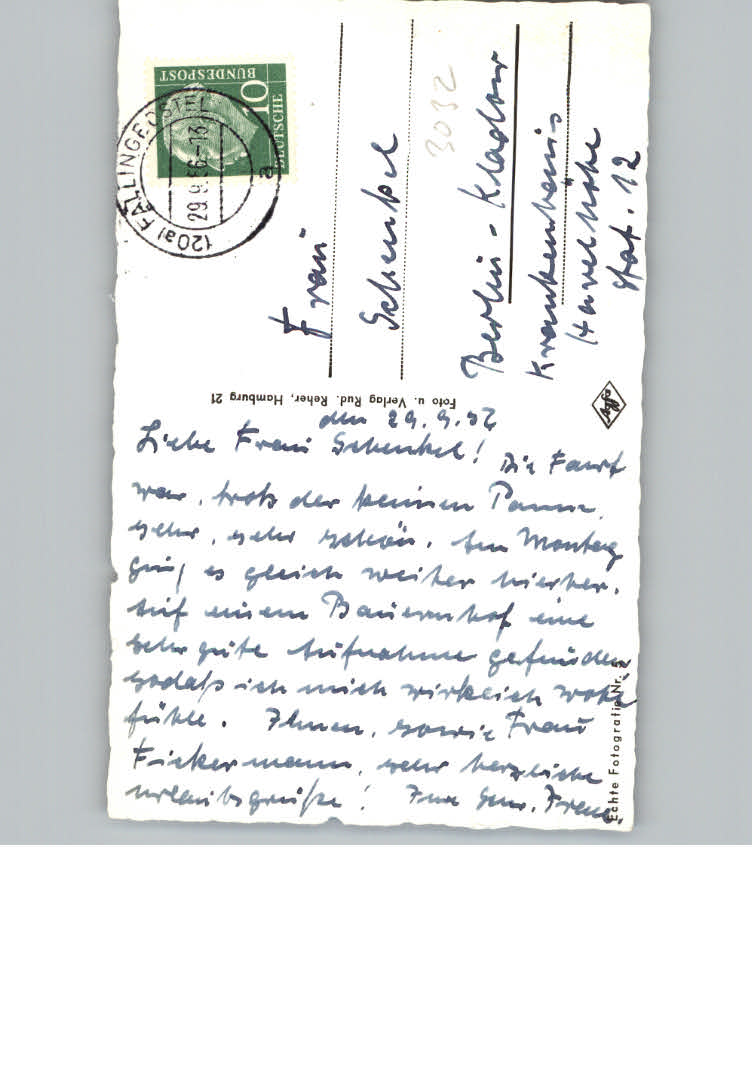 DEUTSCHE
BUNDESPOST
10
(20a) FALLINGBOSTEL
29.9.56-13
a
Frau
Schenkel
3032
Berlin-Kladow
Krankenhaus
Havelhöhe
Stat. 12
Foto u. Verlag Rud. Reher, Hamburg 21
Agfa
den 29.9.56
Liebe Frau Schenkel! Die Fahrt
war, trotz der kleinen Panne,
sehr, sehr schön. Am Montag
ging es gleich weiter hierher.
Auf einem Bauernhof eine
sehr gute Aufnahme gefunden
sodaß ich mich wirklich wohl
fühle. Ihnen, sowie Frau
Fickermann, sehr herzliche
Urlaubsgrüße! Ihre Schw.
Echte Fotografie Nr.